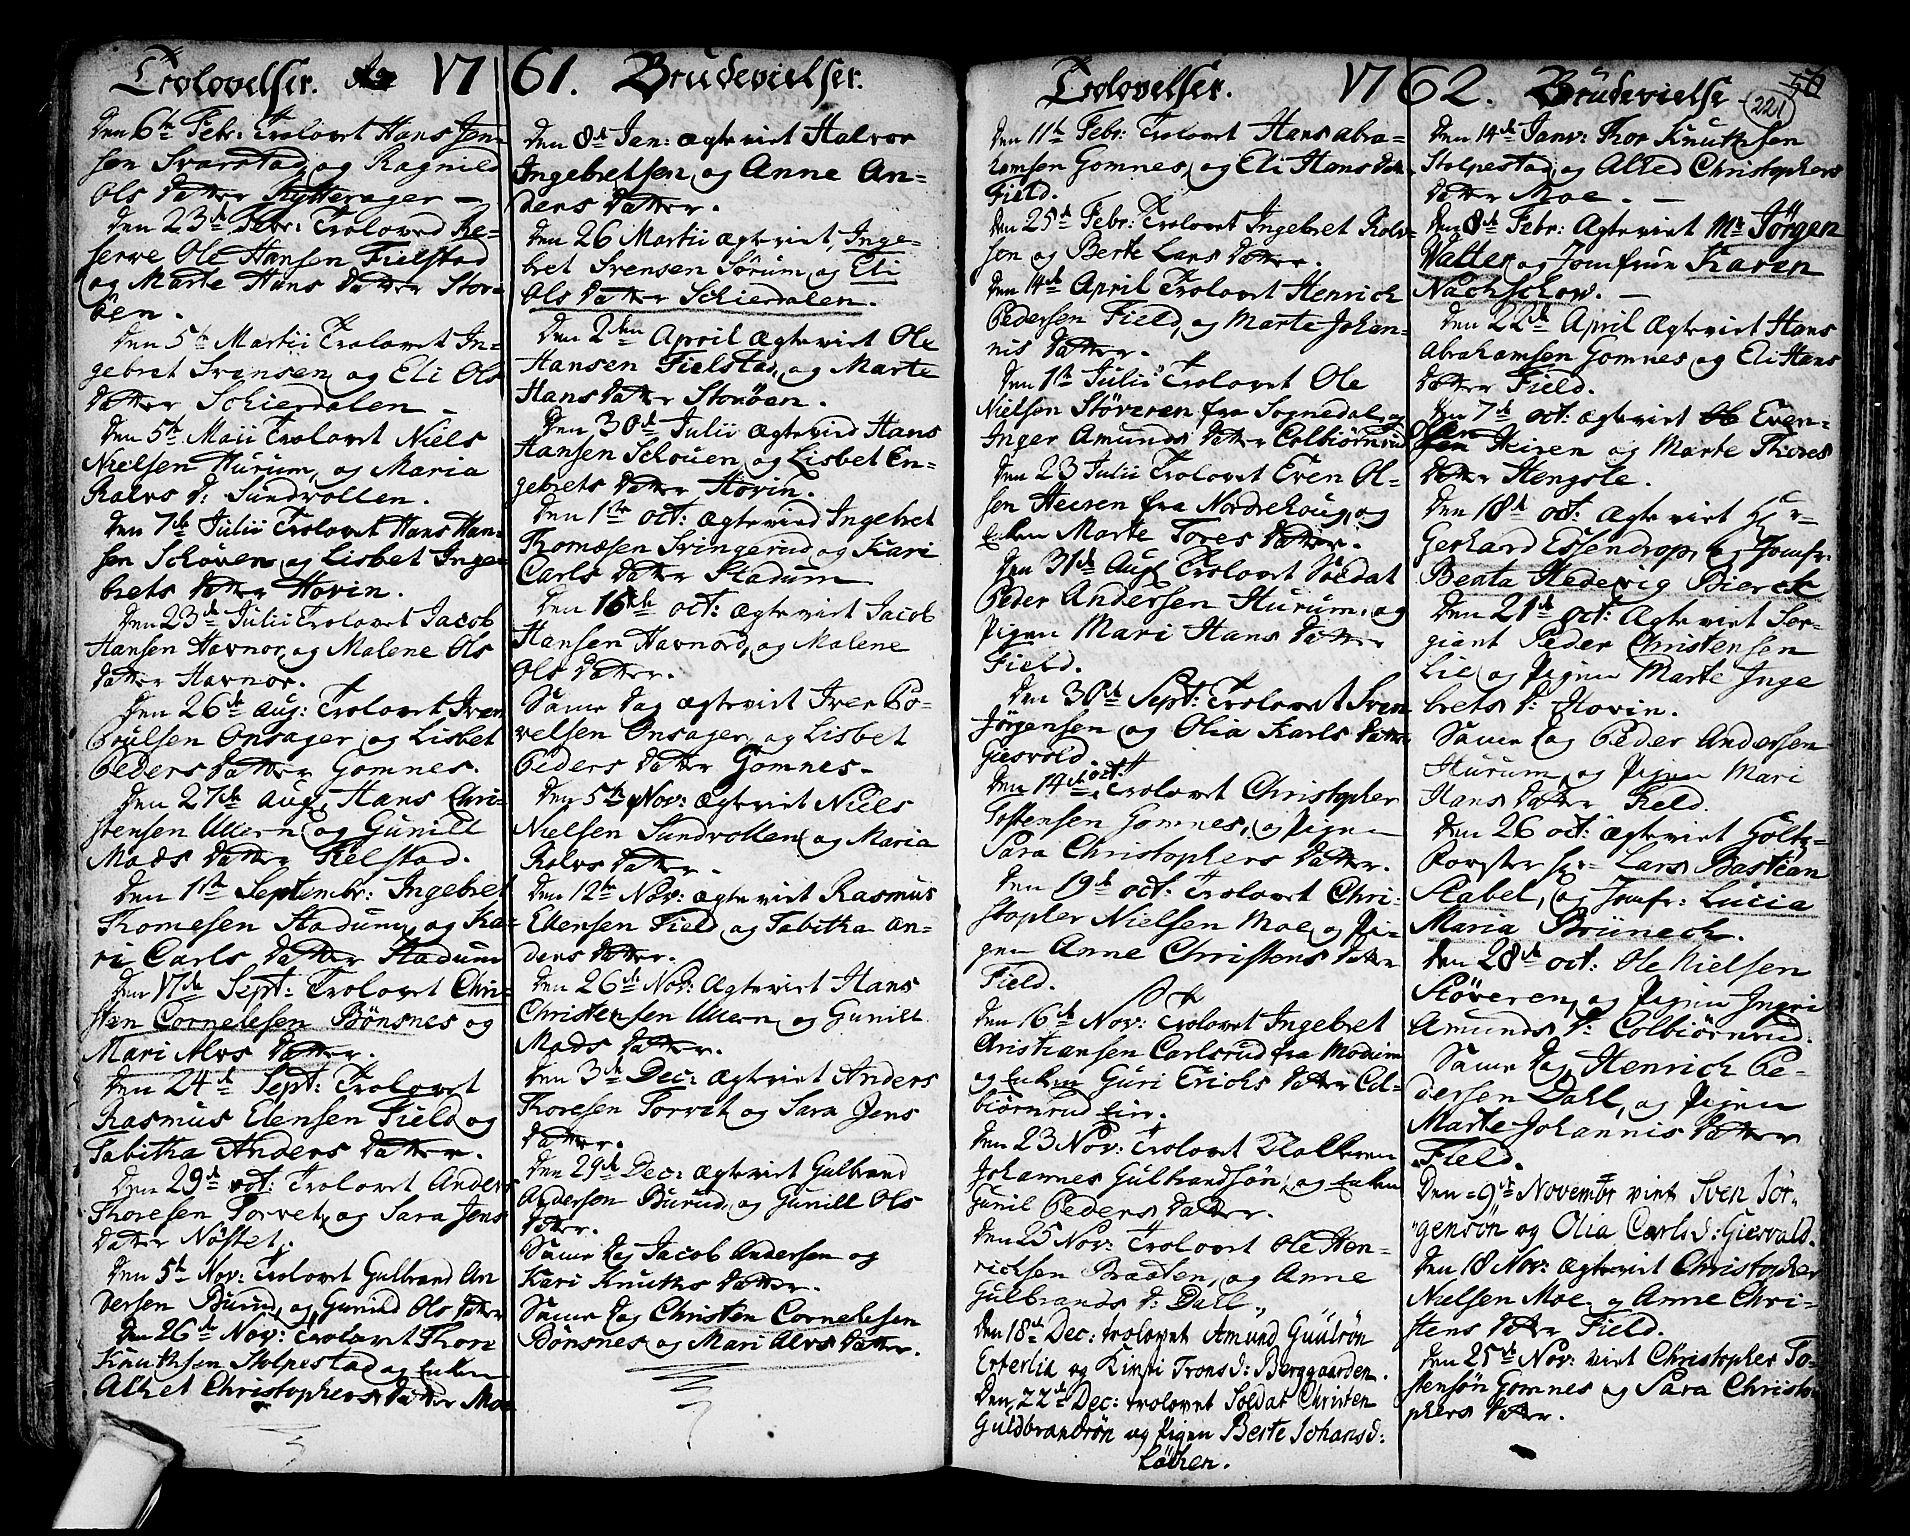 Trolovelser. Ao 17
Den 6te Febr: Trolovet Hans Jen=
sen Svarstad, og Ragnild
Ols Datter Rytterager —
Den 23de Febr: Troloved Re=
serve Ole Hansen Fielstad
og Marte Hans Datter Stor=
öen.
Den 5te Martii Trolovet In=
gebret Svensen, og Eli Ols
Datter Schierdalen —
Den 5te Maii Trolovet Niels
Nielsen Hurum, og Maria
Ralvs D: Sundvollen.
Den 7de Julii Trolovet Hans Han=
sen Schouen, og Lisbet Inge=
brets Datter Hovin.
Den 23de Julii Trolovet Jacob
Hansen Havnor, og Malene Ols
Datter Havnor.
Den 26de Aug: Trolovet Iver
Poulsen Onsager, og Lisbet
Peders Datter Gomnes.
Den 27de Aug: Hans Chri=
stensen Ullern, og Gunild
Mads Datter Fielstad.
Den 1ste Septembr: Ingebret
Thomesen Stadum, og Ka=
ri Carls Datter Stadum
Den 17de Sept: Trolovet Chri=
sten Cornelesen Bönsnes og
Mari Alvs Datter.
Den 24de Sept: Trolovet
Rasmus Elensen Field og
Tabitha Anders Datter.
Den 29de oct: Trolovet Anders
Thoresen Torvet, og Sara Jens
Datter Nöstet.
Den 5te Nov: Trolovet Gulbrand An
dersen Burud, og Gunild Ols Datter
Den 26de Nov: Trolovet Thore
Knuthsen Stolpestad og Enken
Alhet Christophers Datter Moe
61. Brudevielser.
Den 8de Jan: Ægtevirt Halvor
Ingebretsen, og Anne An=
ders Datter.
Den 26 Martii Ægtevirt, Inge=
bret Svensen Sörum, og Eli
Ols Datter Schierdalen.
Den 2den April Ægtevirt Ole
Hansen Fielstad, og Marte
Hans Datter Storöen.
Den 30de Julii Ægtevird Hans
Hansen Schouen, og Lisbet En=
gebrets Datter Hovin.
Den 1ste oct: Ægtevird Ingebret
Thomæsen Svingerud, og Kari
Carls Datter Stadum
Den 16de oct: Ægtevirt Jacob
Hansen Havnord, og Malene
Ols Datter.
Same Dag Ægtevirt Iver Po=
velsen Onsager, og Lisbet
Peders Datter Gomnes—
Den 5te Nov: Ægtevirt Niels
Nielsen Sundvollen, og Maria
Ralvs Datter.
Den 12te Nov: Ægtevirt Rasmus
Ellensen Field, og Tabitha An=
ders Datter.
Den 26de Nov: Ægtevirt Hans
Christensen Ullern og Gunild
Mads Datter.
Den 3de Dec: Ægtevirt Anders
Thoresen Torvet og Sara Jens
Datter.
Den 29de Dec: Ægtevirt Gulbrand
Andersen Burud, og Gunild Ols
Datter.
Same Dag Jacob Andersen og
Kari Knuths Datter.
Same Dag Christen Cornelesen
Bönsnes og Mari Alvs Datter.
Trolovelser. 17
Den 11te Febr: Trolovet Hans Abra=
hamsen Gomnes, og Eli Hans Datter
Field.
Den 25de Febr: Trolovet Ingebret Rolv=
sen og Berte Lars Datter.
Den 14de April Trolovet Henrich
Pedersen Field, og Marte Johan=
nis Datter.
Den 1ste Julii Trolovet Ole
Nielsen Stöveren fra Sognedal, og
Inger Amunds Datter Colbiörnrud
Den 23 Julii Trolovet Even Ol=
sen Heiren fra Nordrehoug, og
Enken Marte Tores Datter.
Den 31de Aug Trolovet Soldat
Peder Andersen Hurum, og
Pigen Mari Hans Datter
Field.
Den 30de Sept: Trolovet Sven
Jörgensen og Olia Karls Datter
Giesvold
Den 14de oct: Trolovet Christopher
Tostensen Gomnes, og Pigen
Sara Christophers Datter.
Den 19de oct: Trolovet Chri=
stopher Nielsen Moe, og Pi=
gen Anne Christens Datter
Field.
Den 16de Nov: Trolovet Ingebret
Christiansen Carlsrud fra Modum
og Enken Guri Erichs Datter Col=
biörnrud Eier.
Den 23 Nov: Trolovet
Johannes Gulbrandsön, og Enken
Gunil Peders Datter.
Den 25 Nov: Trolovet Ole Hen=
richsen Braaten, og Anne
Gulbrands D: Dæhl.
Den 18de Dec: trolovet Amund Guulsön
Erterlia og Kirsti Trons d: Berggaarden.
Den 22de Dec: trolovet Soldat Christen
Guldbrandsön og Pigen Berte Johans d:
Löchen.
62. Brudevielse 56
221
Den 14de Janv: Thor Knuthsen
Stolpestad, og Alhed Christophers
Datter Moe. —
Den 8de Febr: Ægtevirt Mr Jörgen
Walter, og Jomfrue Karen
Nachschow. —
Den 22de April Ægtevirt Hans
Abrahamsen Gomnes og Eli Hans
Datter Field.
Den 7de oct: Ægtevirt Even
Olsen Heiren og Marte Thores
Datter Hengsle.
Den 18de oct: Ægtevirt Hr
Gerhard Essendrop, og Jomfr:
Benta Hedevig Bierch
Den 21de oct: Ægtevirt Ser=
giant Peder Christensen
Lie, og Pigen Marte Inge
brets D: Hovin.
Same Dag Peder Anderssen
Hurum, og Pigen Mari
Hans Datter Field.
Den 26 oct: Ægtevirt Holtz=
Forster Hr Lars Bastian
Stabel, og Jomfr: Lucia
Maria Brünech.
Den 28de oct: Ole Nielsen
Stöveren, og Pigen Ingri
Amunds D: Colbiörnrud.
Same Dag Henrich Pe=
dersen Dæhl, og Pigen
Marte Johannis Datter
Field.
Den 9de Novembr virt Sven Jör=
gensön og Olia Carls d: Giesvold.
Den 18 Nov: Ægtevirt Christopher
Nielsen Moe, og Anne Chri=
stens Datter Field.
Den 25de Nov: virt Christopher To=
stensön Gomnes og Sara Christo
phers Datter.